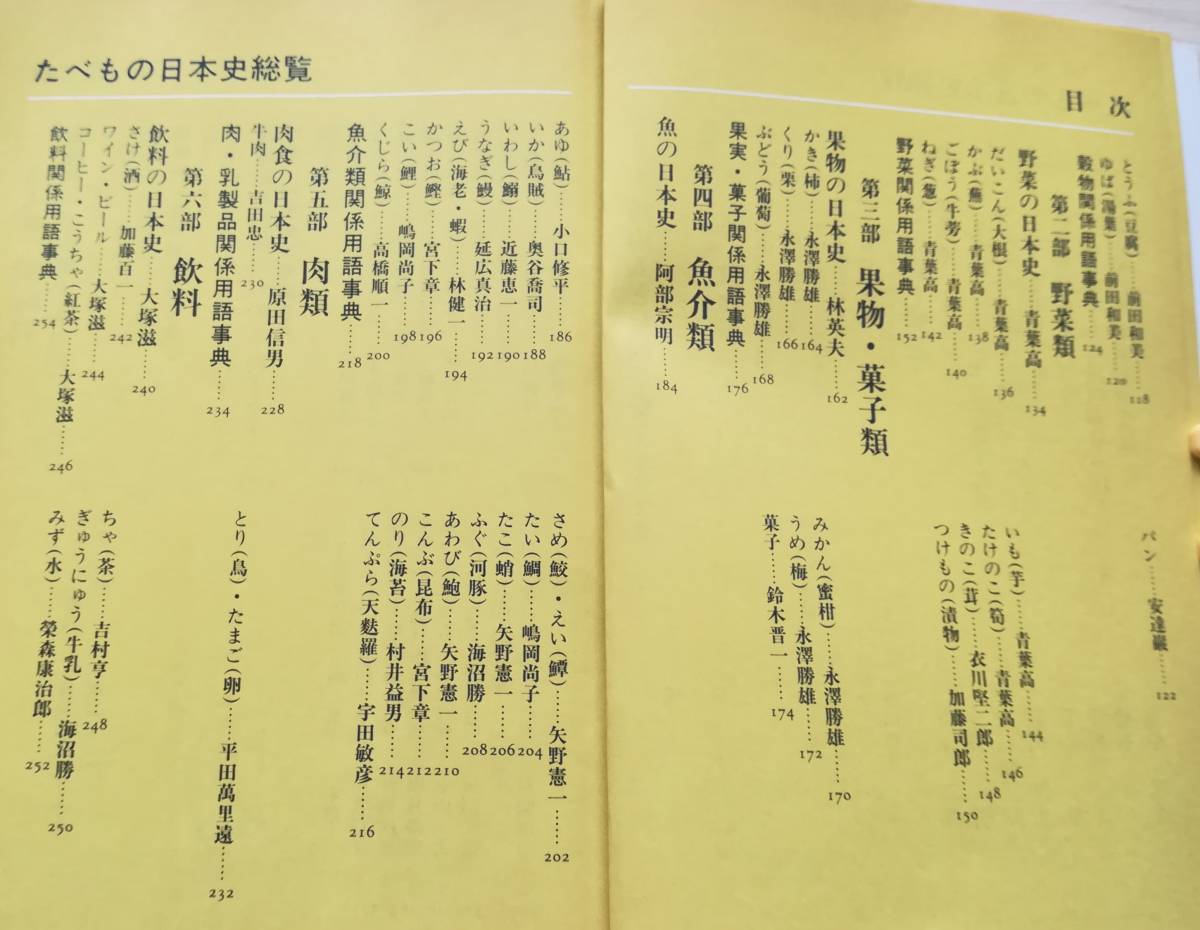 目次
とうふ(豆腐)……前田和美……118
ゆば(湯葉)……前田和美……120
穀物関係用語事典……124
パン……安達巖……122
第二部 野菜類
野菜の日本史……青葉高……134
だいこん(大根)……青葉高……136
かぶ(蕪)……青葉高……138
ごぼう(牛蒡)……青葉高……140
ねぎ(葱)……青葉高……142
野菜関係用語事典……152
いも(芋)……青葉高……144
たけのこ(筍)……青葉高……146
きのこ(茸)……衣川堅二郎……148
つけもの(漬物)……加藤司郎……150
第三部 果物・菓子類
果物の日本史……林英夫……162
かき(柿)……永澤勝雄……164
くり(栗)……永澤勝雄……166
ぶどう(葡萄)……永澤勝雄……168
果実・菓子関係用語事典……176
みかん(蜜柑)……永澤勝雄……170
うめ(梅)……永澤勝雄……172
菓子……鈴木晋一……174
第四部 魚介類
魚の日本史……阿部宗明……184
たべもの日本史総覧
あゆ(鮎)……小口修平……186
いか(烏賊)……奥谷喬司……188
いわし(鰯)……近藤恵一……190
うなぎ(鰻)……延広真治……192
えび(海老・蝦)……林健一……194
かつお(鰹)……宮下章……196
こい(鯉)……嶋岡尚子……198
くじら(鯨)……高橋順一……200
魚介類関係用語事典……218
さめ(鮫)・えい(鱏)……矢野憲一……202
たい(鯛)……嶋岡尚子……204
たこ(蛸)……矢野憲一……206
ふぐ(河豚)……海沼勝……208
あわび(鮑)……矢野憲一……210
こんぶ(昆布)……宮下章……212
のり(海苔)……村井益男……214
てんぷら(天麩羅)……宇田敏彦……216
第五部 肉類
肉食の日本史……原田信男……228
牛肉……吉田忠……230
肉・乳製品関係用語事典……234
とり(鳥)・たまご(卵)……平田萬里遠……232
第六部 飲料
飲料の日本史……大塚滋……240
さけ(酒)……加藤百一……242
ワイン・ビール……大塚滋……244
コーヒー・こうちゃ(紅茶)……大塚滋……246
飲料関係用語事典……254
ちゃ(茶)……吉村亨……248
ぎゅうにゅう(牛乳)……海沼勝……250
みず(水)……榮森康治郎……252